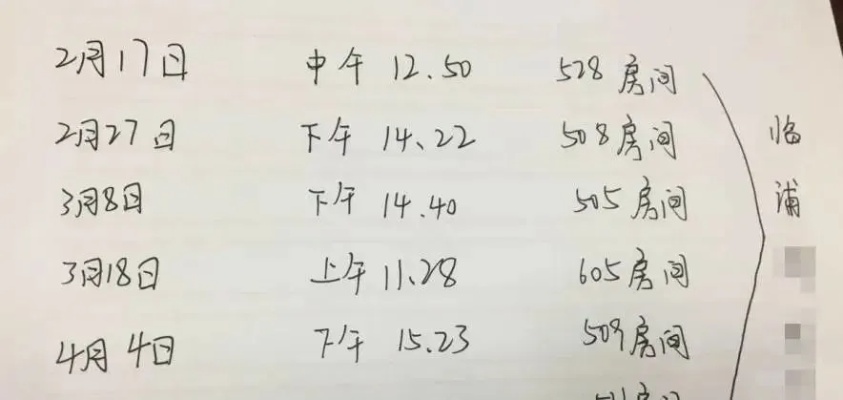 2月17日 中午 12.50 528房间
2月27日 下午 14.22 508房间
3月8日 下午 14.40 505房间
3月18日 上午 11.28 605房间
4月4日 下午 15.23 509房间
房间
临浦